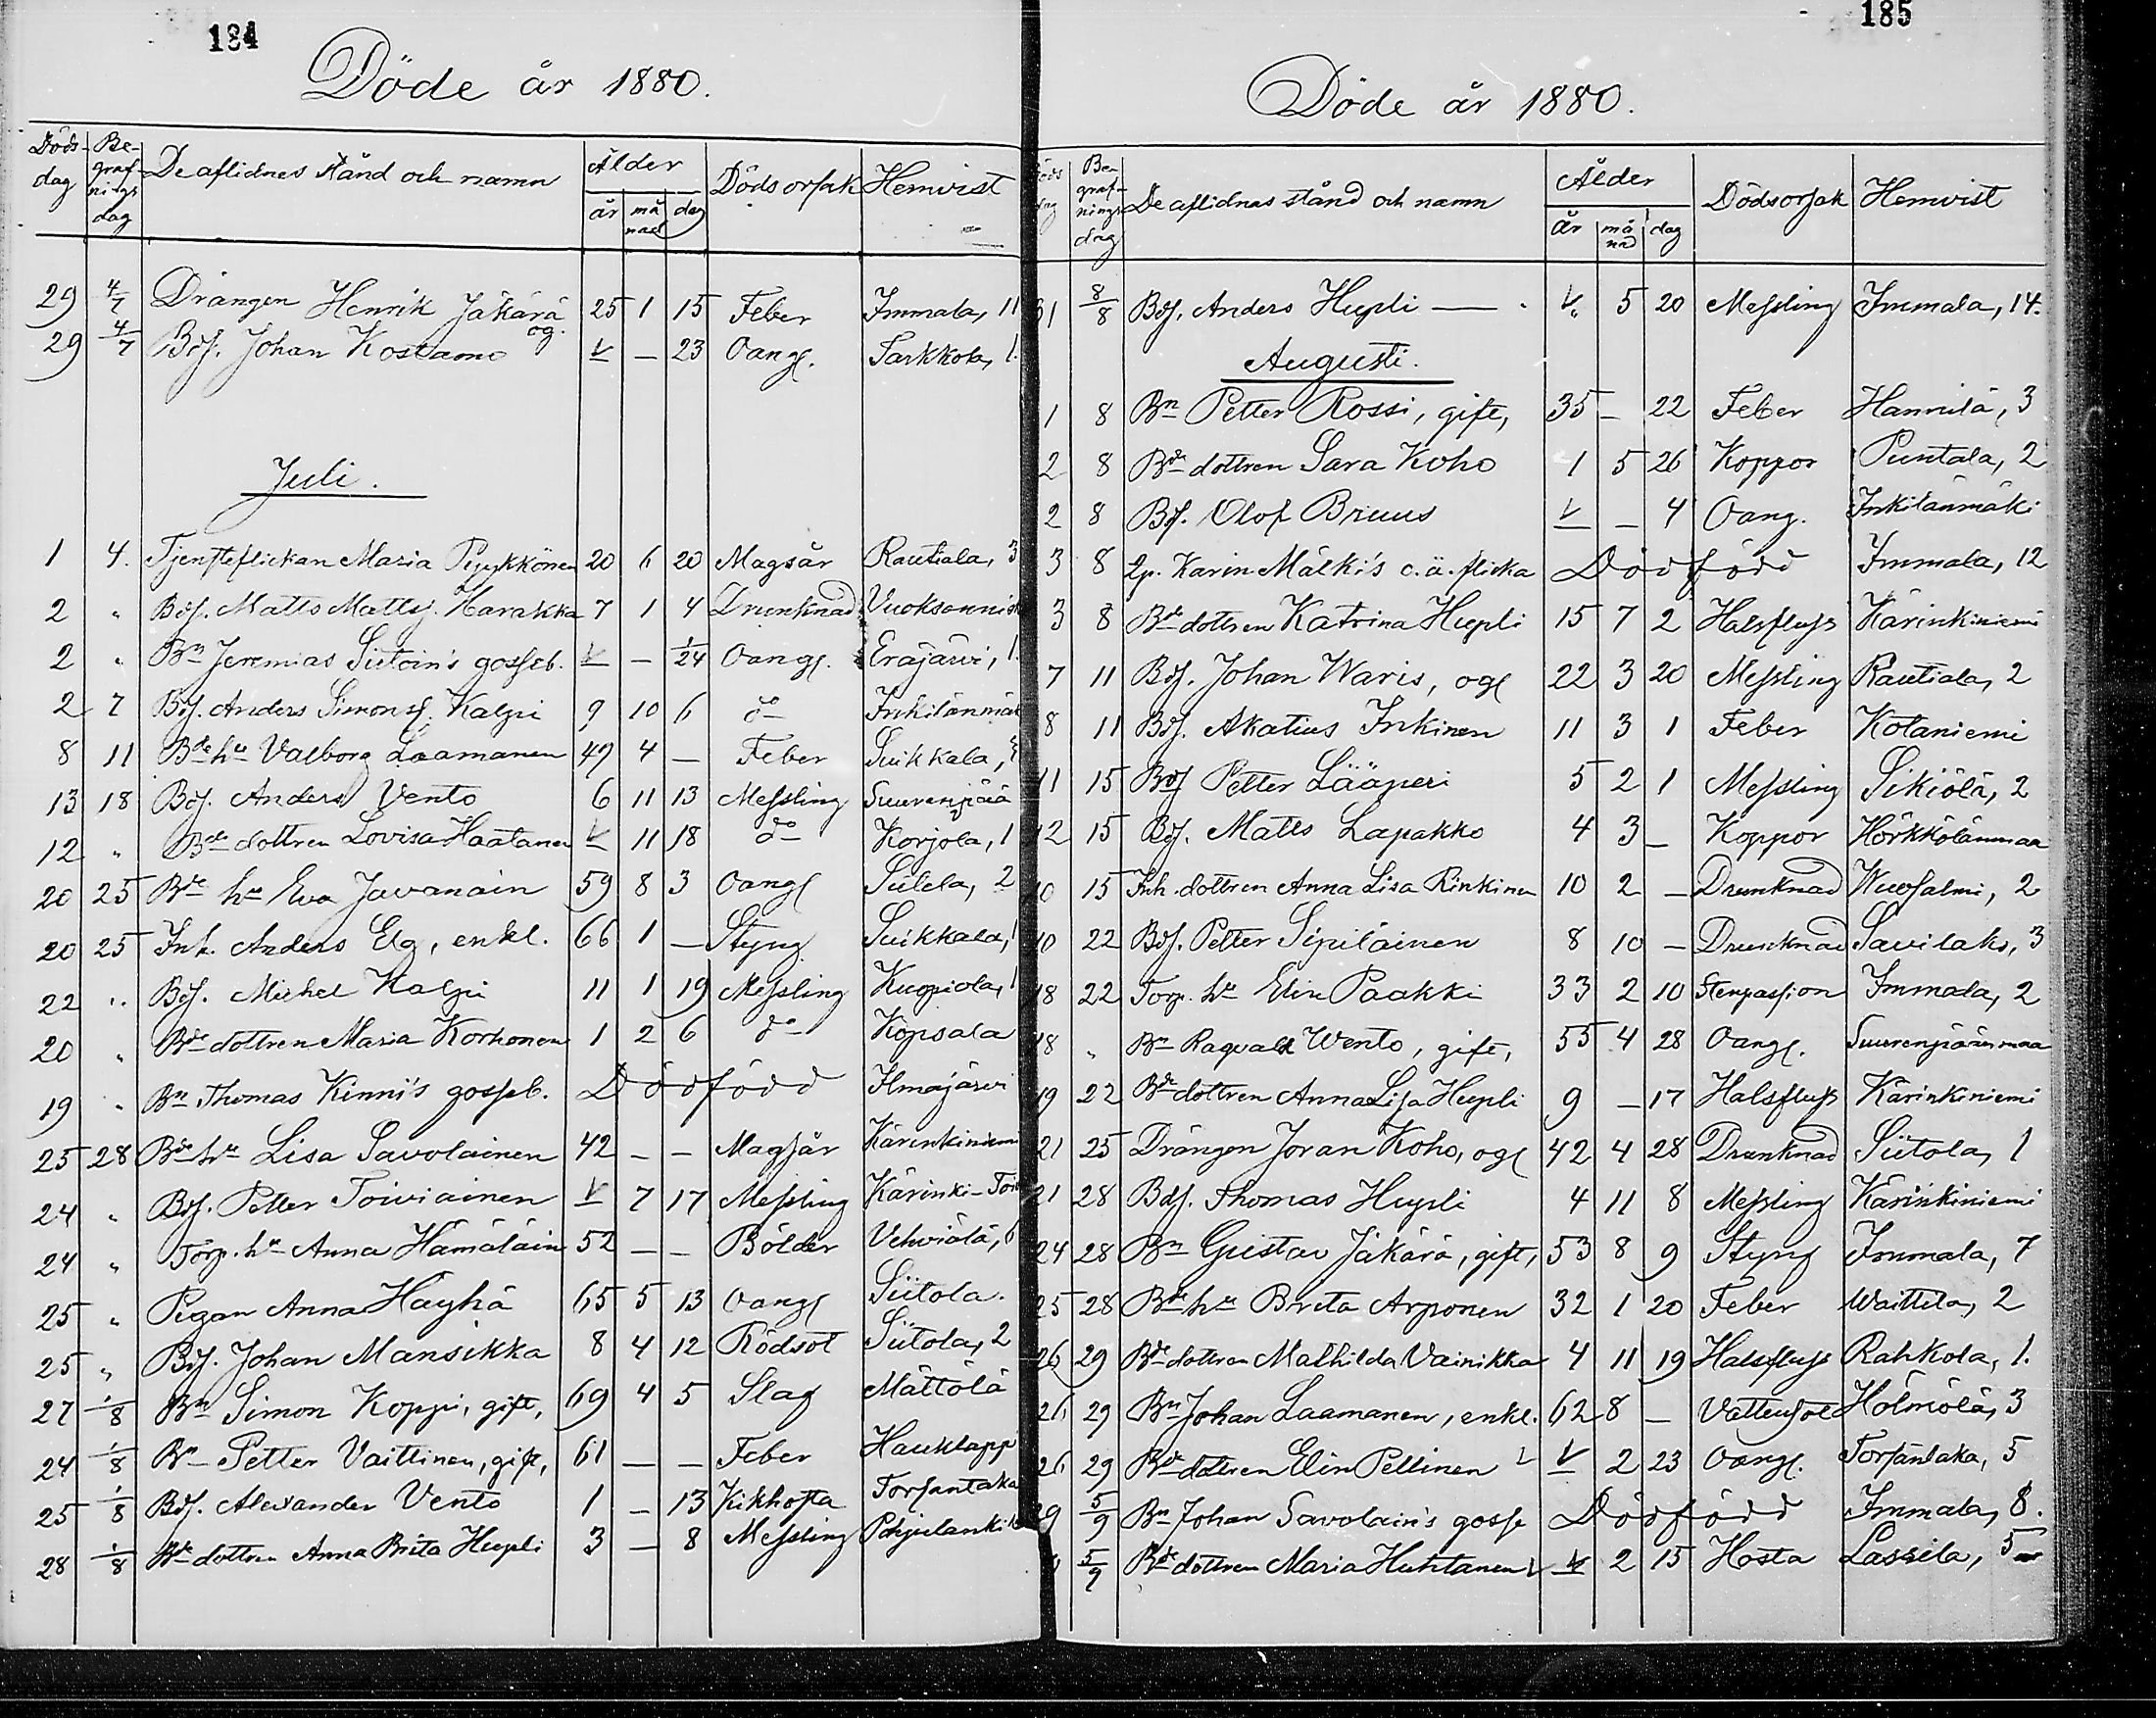 184
Döde år 1880.
Döds-dag Be-grafnings dag De aflidnes stånd och namn Ålder år månad dag Dödsorsak Hemvist
29 4/7 Drängen Henrik Jäkärä og. 25 1 15 Feber Immala, 11
29 4/7 Bds. Johan Kostamo – 23 Oang. Sarkkola, 1.
Juli.
1 4. Tjensteflickan Maria Pyykkönen 20 6 20 Magsår Rautiala, 3
2 " Bds. Matts Mattss. Harakka 7 1 4 Drunknad Vuoksenniska
2 " Bn Jeremias Siitoin's gosseb. – 1/24 Oang. Eräjärvi, 1.
2 7 Bds. Anders Simonss. Kalpi 9 10 6 do Inkilänmäki
8 11 Bde hu Valborg Laamanen 49 4 – Feber Suikkala,
13 18 Bds. Anders Vento 6 11 13 Messling Suurenpää
12 " Bde dottren Lovisa Haatanen 11 18 do Korjola, 1
20 25 Bde hu Eva Javanain 59 8 3 Oang. Siilela, 2
20 25 Inh. Anders Elg, enkl. 66 1 – Styng Suikkala, 1
22 " Bds. Michel Kalpi 11 1 19 Messling Kuopiola, 1
20 " Bde dottren Maria Korhonen 1 2 6 do Kopsala
19 " Bn Thomas Kinni's gosseb. Dödfödd Ilmajärvi
25 28 Bde hu Lisa Savolainen 42 – – Magsår Kärinkiniemi
24 " Bds. Petter Toiviainen 7 17 Messling Kärinki-Toi
24 " Torp. hu Anna Hämäläin 52 – – Bölder Vehviälä, 6
25 " Pigan Anna Häyhä 65 5 13 Oang. Siitola.
25 " Bds. Johan Mansikka 8 4 12 Rödsot Siitola, 2
27 1/8 Bn Simon Koppi, gift, 69 4 5 Slag Mättölä
24 1/8 Bn Petter Vaittinen, gift, 61 – – Feber Hauklappi
25 1/8 Bds. Alexander Vento 1 – 13 Kikhosta Torsantaka
28 1/8 Bde dottren Anna Brita Hupli 3 – 8 Messling Pohjalankila
185
Döde år 1880.
Döds dag Be-grafnings dag De aflidnes stånd och namn Ålder år månad dag Dödsorsak Hemvist
31 8/8 Bds. Anders Hupli — 5 20 Messling Immala, 14.
Augusti.
1 8 Bn Petter Rossi, gift, 35 – 22 Feber Hannila, 3
2 8 Bde dottren Sara Koho 1 5 26 Koppor Puntala, 2
2 8 Bds. Olof Bruus – 4 Oang. Inkilänmäki
3 8 Lp. Karin Mälki's o.ä. flicka Dödfödd Immala, 12
3 8 Bde dottren Katrina Hupli 15 7 2 Halsfluss Kärinkiniemi
7 11 Bds. Johan Waris, og. 22 3 20 Messling Rautiala, 2
8 11 Bds. Akatius Inkinen 11 3 1 Feber Kotaniemi
11 15 Bds Petter Lääperi 5 2 1 Messling Sikiölä, 2
12 15 Bds. Matts Lapakko 4 3 – Koppor Hörkkölänmaa
10 15 Inh. dottren Anna Lisa Rinkinen 10 2 – Drunknad Wuosalmi, 2
10 22 Bds. Petter Sipiläinen 8 10 – Drunknad Savilaks, 3
18 22 Torp. hu Elin Paakki 33 2 10 Stenpassion Immala, 2
18 " Bn Raguald Wento, gift, 55 4 28 Oang. Suurenpäänmaa
19 22 Bde dottren Anna Lisa Hupli 9 – 17 Halsfluss Kärinkiniemi
21 25 Drängen Joran Koho, og. 42 4 28 Drunknad Siitola, 1
21 28 Bds. Thomas Hupli 4 11 8 Messling Kärinkiniemi
24 28 Bn Gustav Jäkärä, gift, 53 8 9 Styng Immala, 7
25 28 Bde hu Brita Arponen 32 1 20 Feber Waittila, 2
26 29 Bde dottren Mathilda Vainikka 4 11 19 Halsfluss Rahkola, 1.
26 29 Bn Johan Laamanen, enkl. 62 8 – Vattusot Hölmölä, 3
26 29 Bde dottren Elin Pellinen 2 23 Oang. Torsantaka, 5
29 5/9 Bn Johan Savolain's gosse Dödfödd Immala, 8.
5/9 Bde dottren Maria Huhtanen 2 15 Hosta Lassila, 5